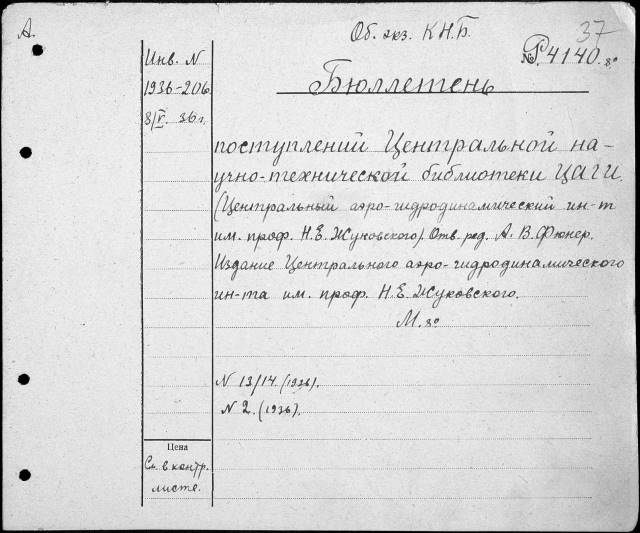 А.
Об. экз. К.Н.Б.
37
№ Р. 4140. 8°
Инв. N
1936-206
8/V. 36 г.
Бюллетень
поступлений Центральной на-
учно-технической библиотеки ЦАГИ.
(Центральный аэро-гидродинамический ин-т
им. проф. Н.Е. Жуковского). Отв. ред. А. В. Фюнер.
Издание Центрального аэро-гидродинамического
ин-та им. проф. Н.Е. Жуковского.
М. 8°
N 13/14. (1936).
N 2. (1936).
Цена
См. в контр.
листе.